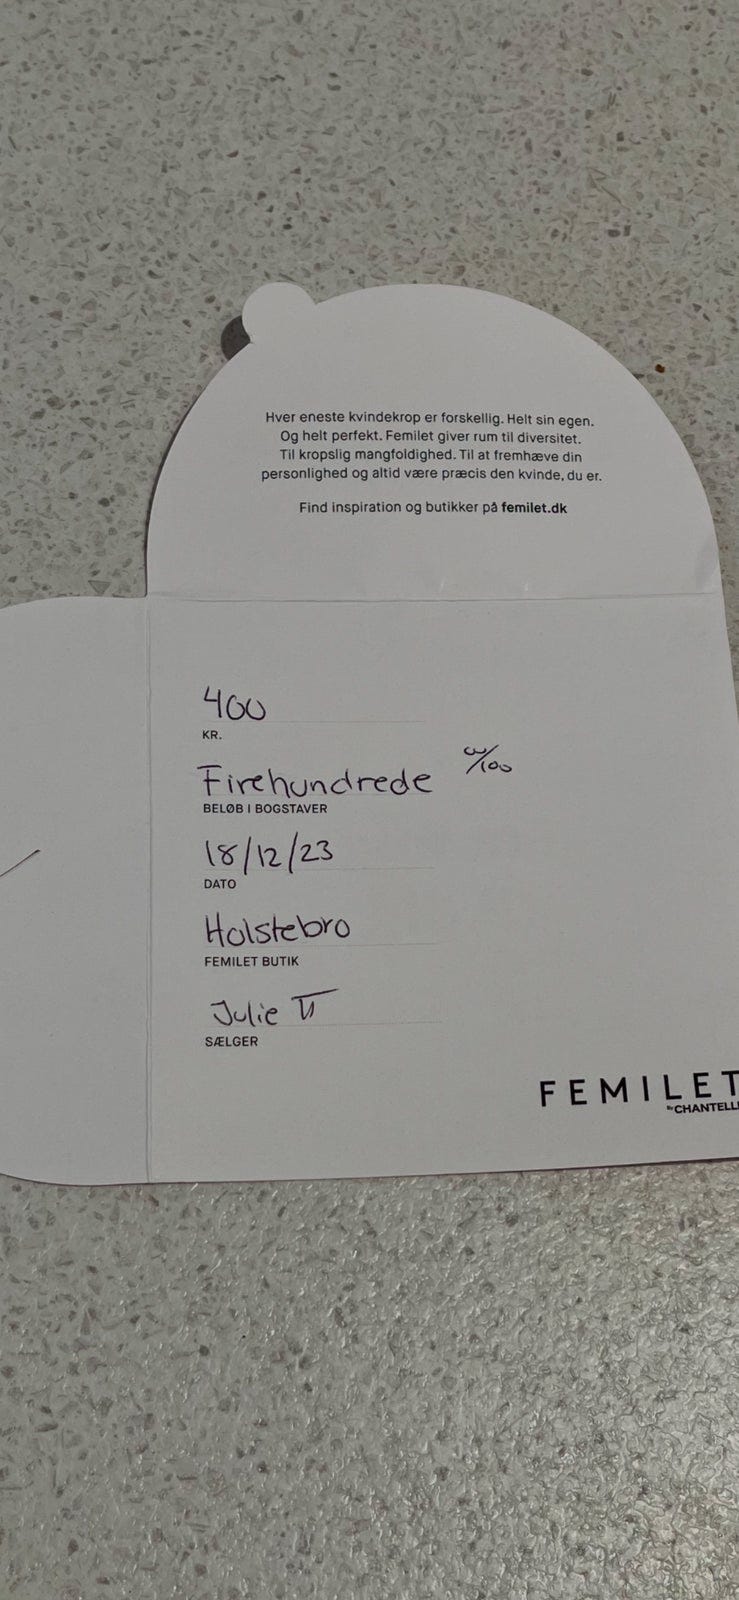 Hver eneste kvindekrop er forskellig. Helt sin egen.
Og helt perfekt. Femilet giver rum til diversitet.
Til kropslig mangfoldighed. Til at fremhæve din
personlighed og altid være præcis den kvinde, du er.
Find inspiration og butikker på femilet.dk
400
KR.
Firehundrede 00/100
BELØB I BOGSTAVER
18/12/23
DATO
Holstebro
FEMILET BUTIK
Julie
SÆLGER
FEMILET
BY CHANTELL